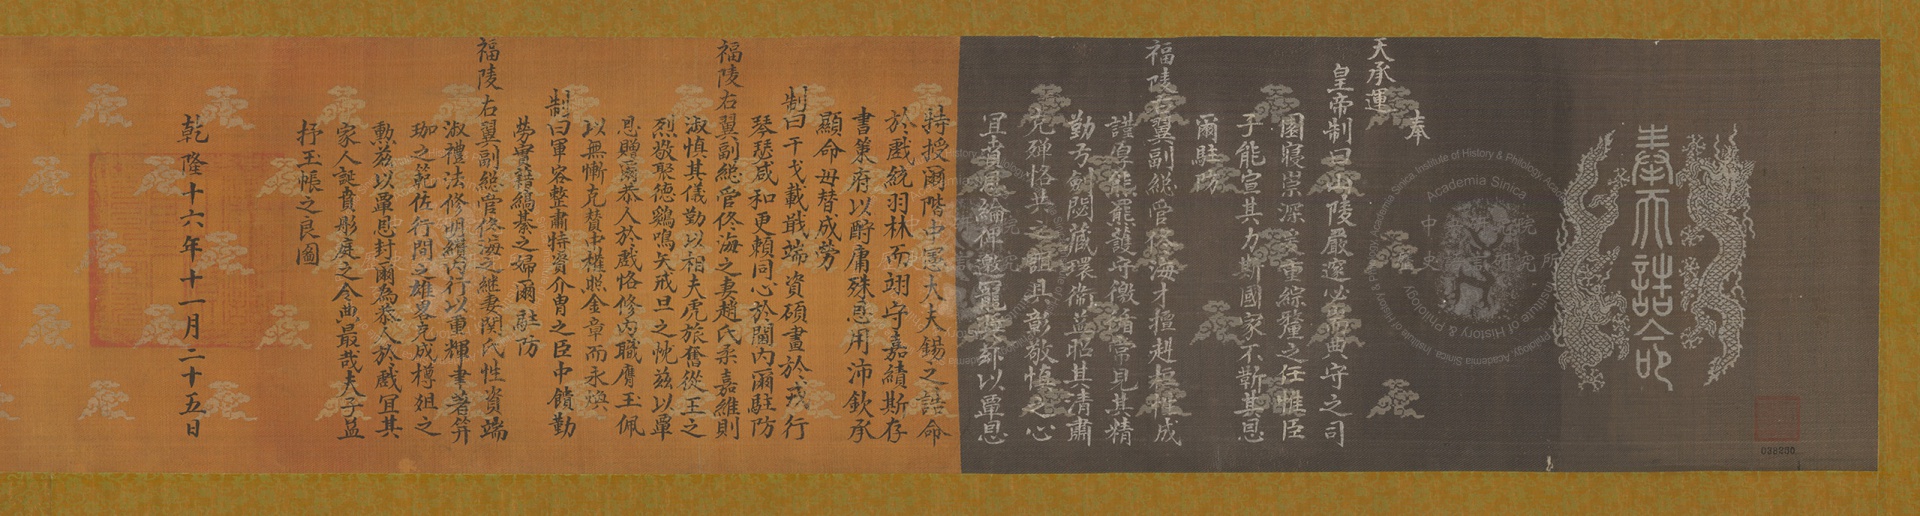 奉天誥命
奉
天承運
皇帝制曰山陵嚴邃必崇典守之司
園寢崇深爰重綜釐之任惟臣
子能宣其力斯國家不靳其恩
爾駐防
福陵右翼副總管佟海才擅赳桓性成
謹厚能羆護守儆循常見其精
勤弓劍閟藏環衞益昭其清肅
允殫恪共之誼具彰敬慎之心
宜賁恩綸俾邀寵 茲以覃恩
特授爾階中憲大夫錫之誥命
於戲統羽林而翊守嘉績斯存
書策府以酹庸殊恩用沛欽承
顯命毋替成勞
制曰干戈載戢端資碩畫於戎行
琴瑟咸和更賴同心於閫內爾駐防
福陵右翼副總管佟海之妻趙氏柔嘉維則
淑慎其儀勤以相夫虎旅奮從王之
烈敬聚德鷄鳴矢戒旦之忱茲以覃
恩贈爾為恭人於戲恪修內職膺玉佩
以無慚克贊中權照金章而永煥
制曰軍容整肅特資介冑之臣中饋勤
勞實藉縞綦之婦爾駐防
福陵右翼副總管佟海之繼妻関氏性資端
淑禮法修明纘內行以重輝聿著笄
珈之範佐行間之雄畧克成樽俎之
勲茲以覃恩封爾為恭人於戲宜其
家人誕賁彤庭之令典最哉夫子益
抒玉帳之良圖
乾隆十六年十一月二十五日
038230
中央研究院
歷史語言研究所
Academia Sinica
Institute of History & Philology